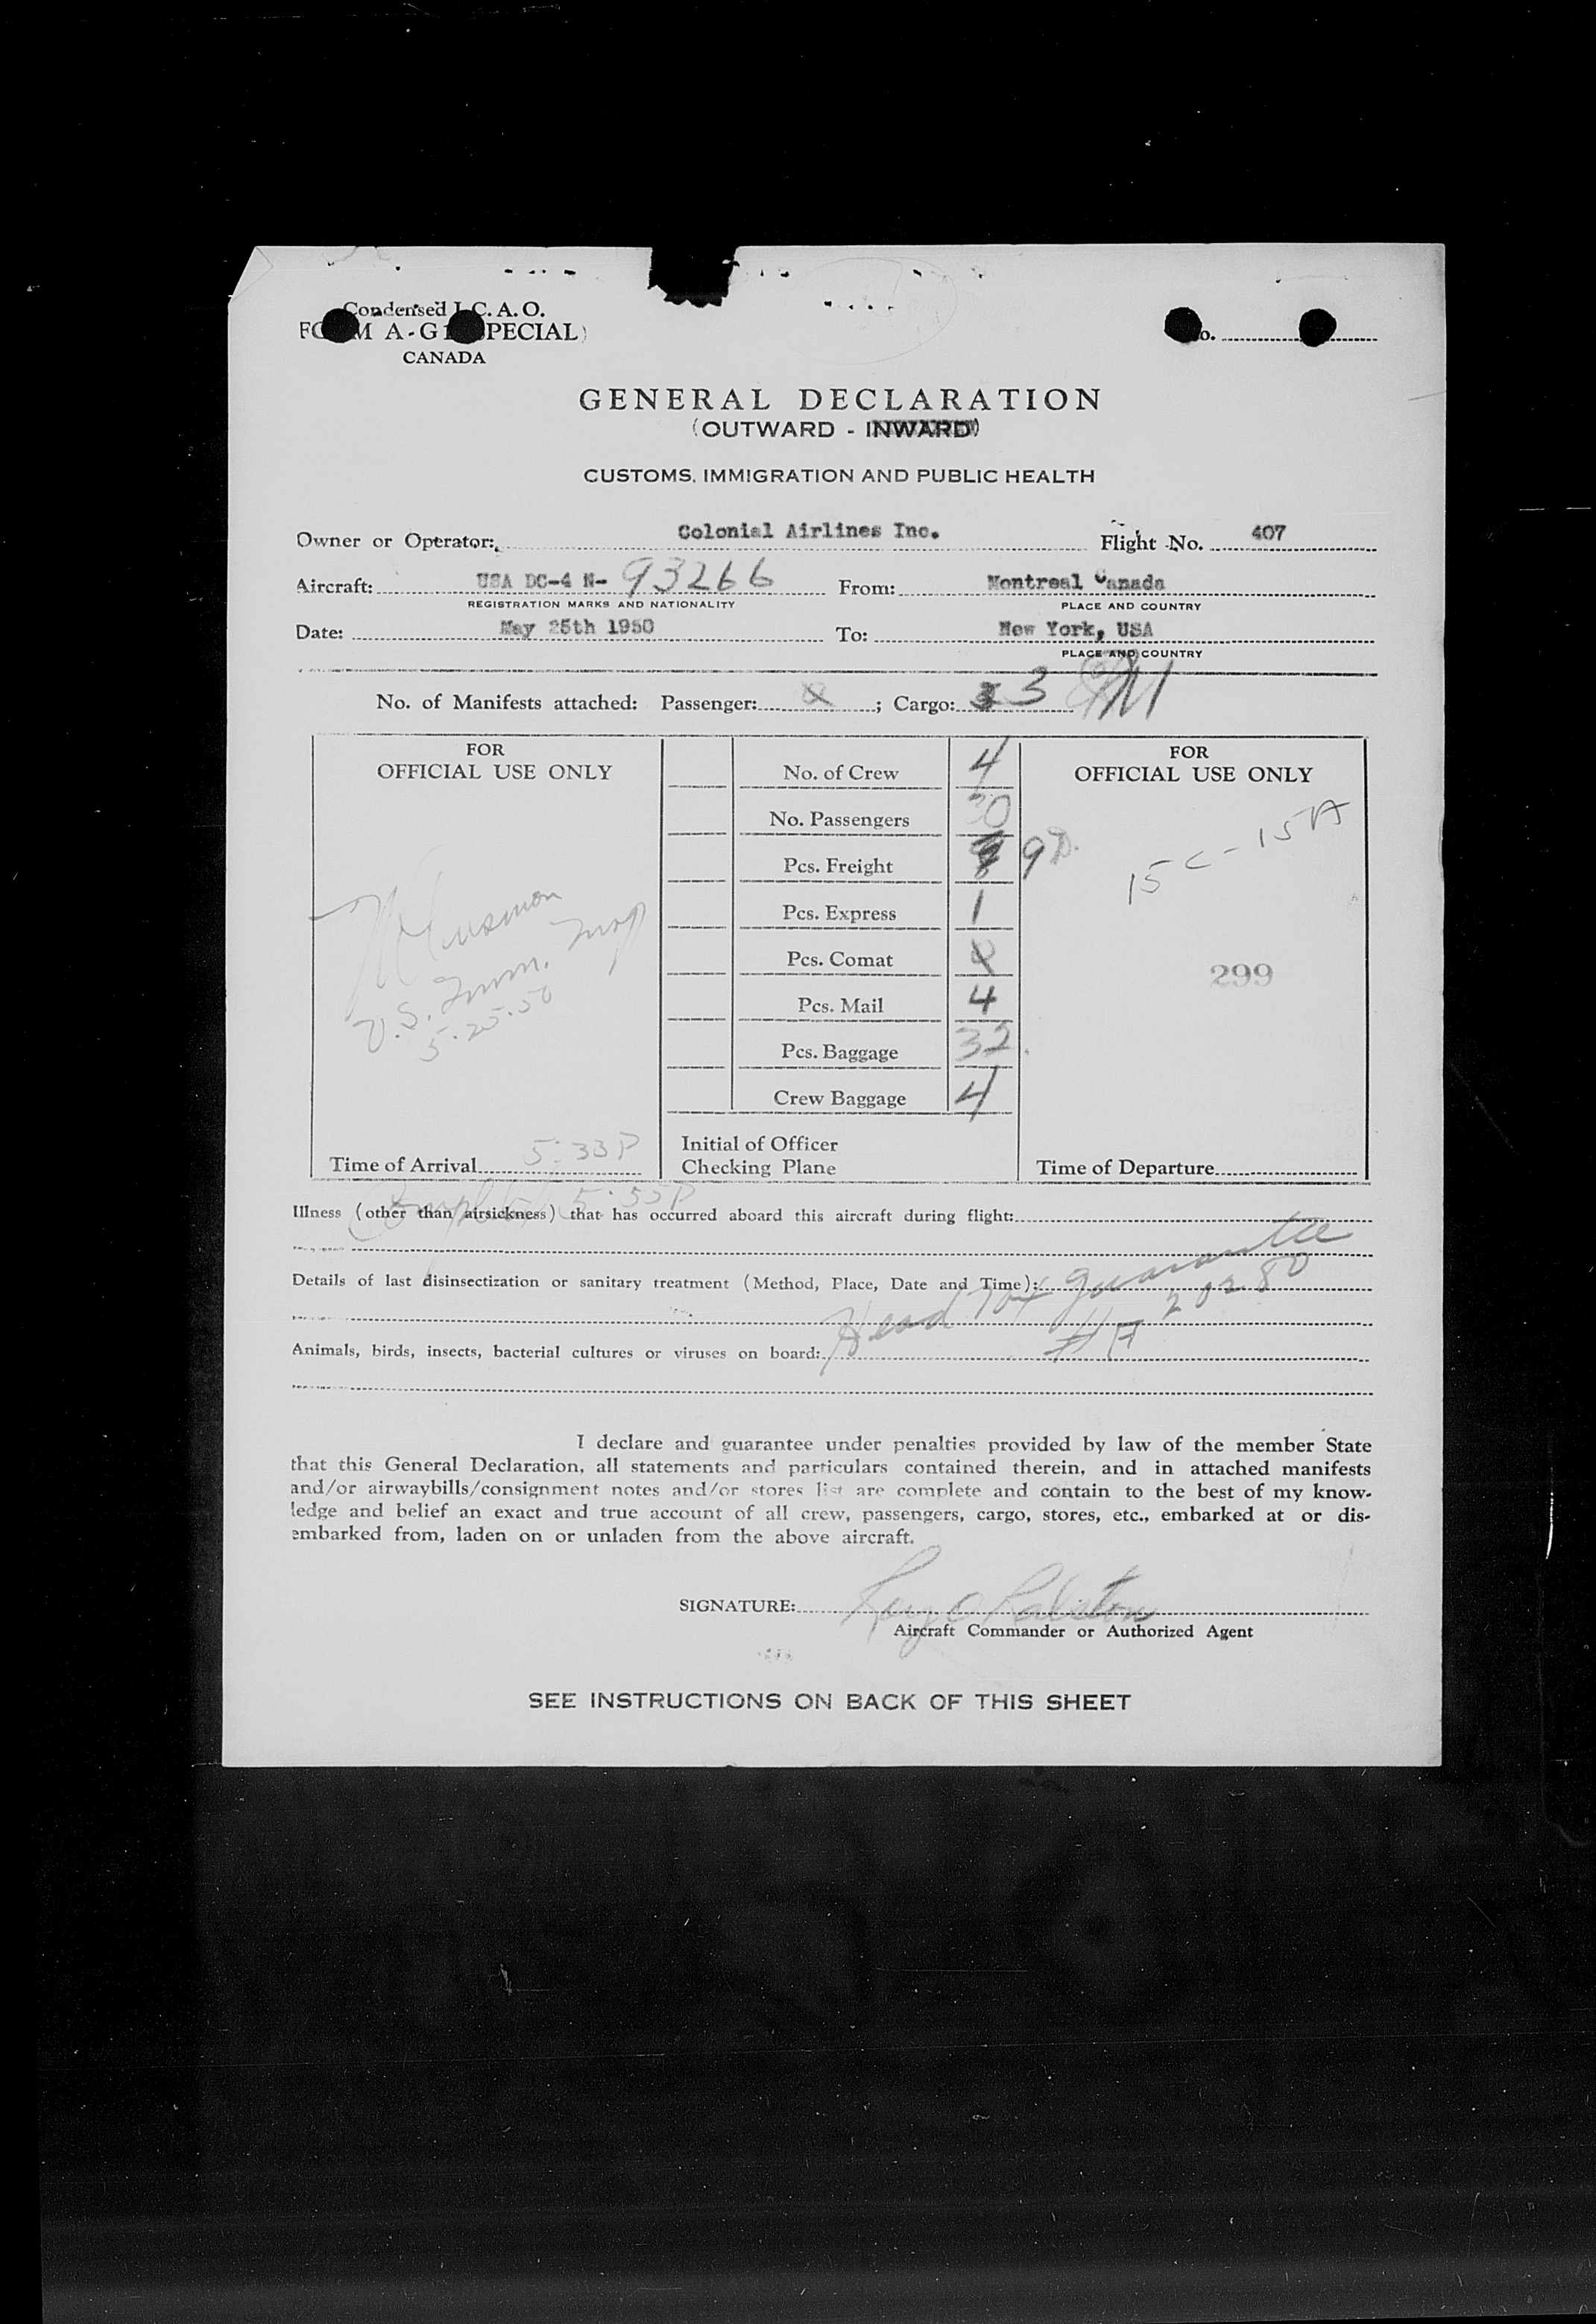 Condensed I. C. A. O.
FORM A-G1 (SPECIAL)
CANADA
No.
GENERAL DECLARATION
(OUTWARD - INWARD)
CUSTOMS, IMMIGRATION AND PUBLIC HEALTH
Owner or Operator: Colonial Airlines Inc. Flight No. 407
Aircraft: USA DC-4 N- 93266 From: Montreal Canada
REGISTRATION MARKS AND NATIONALITY PLACE AND COUNTRY
Date: May 25th 1950 To: New York, USA
PLACE AND COUNTRY
No. of Manifests attached: Passenger: ; Cargo: 3
FOR
OFFICIAL USE ONLY
U.S. Imm. Insp
5.25.50
Time of Arrival 5:33P
No. of Crew 4
No. Passengers 30
Pcs. Freight 9
Pcs. Express 1
Pcs. Comat
Pcs. Mail 4
Pcs. Baggage 32
Crew Baggage 4
Initial of Officer
Checking Plane
FOR
OFFICIAL USE ONLY
15C-15A
299
Time of Departure
Completed 5:55P
Illness (other than airsickness) that has occurred aboard this aircraft during flight:
Details of last disinsectization or sanitary treatment (Method, Place, Date and Time):
Head Tax guarantee
# F 20280
Animals, birds, insects, bacterial cultures or viruses on board:
I declare and guarantee under penalties provided by law of the member State
that this General Declaration, all statements and particulars contained therein, and in attached manifests
and/or airwaybills/consignment notes and/or stores list are complete and contain to the best of my know-
ledge and belief an exact and true account of all crew, passengers, cargo, stores, etc., embarked at or dis-
embarked from, laden on or unladen from the above aircraft.
SIGNATURE: Ralston
Aircraft Commander or Authorized Agent
SEE INSTRUCTIONS ON BACK OF THIS SHEET